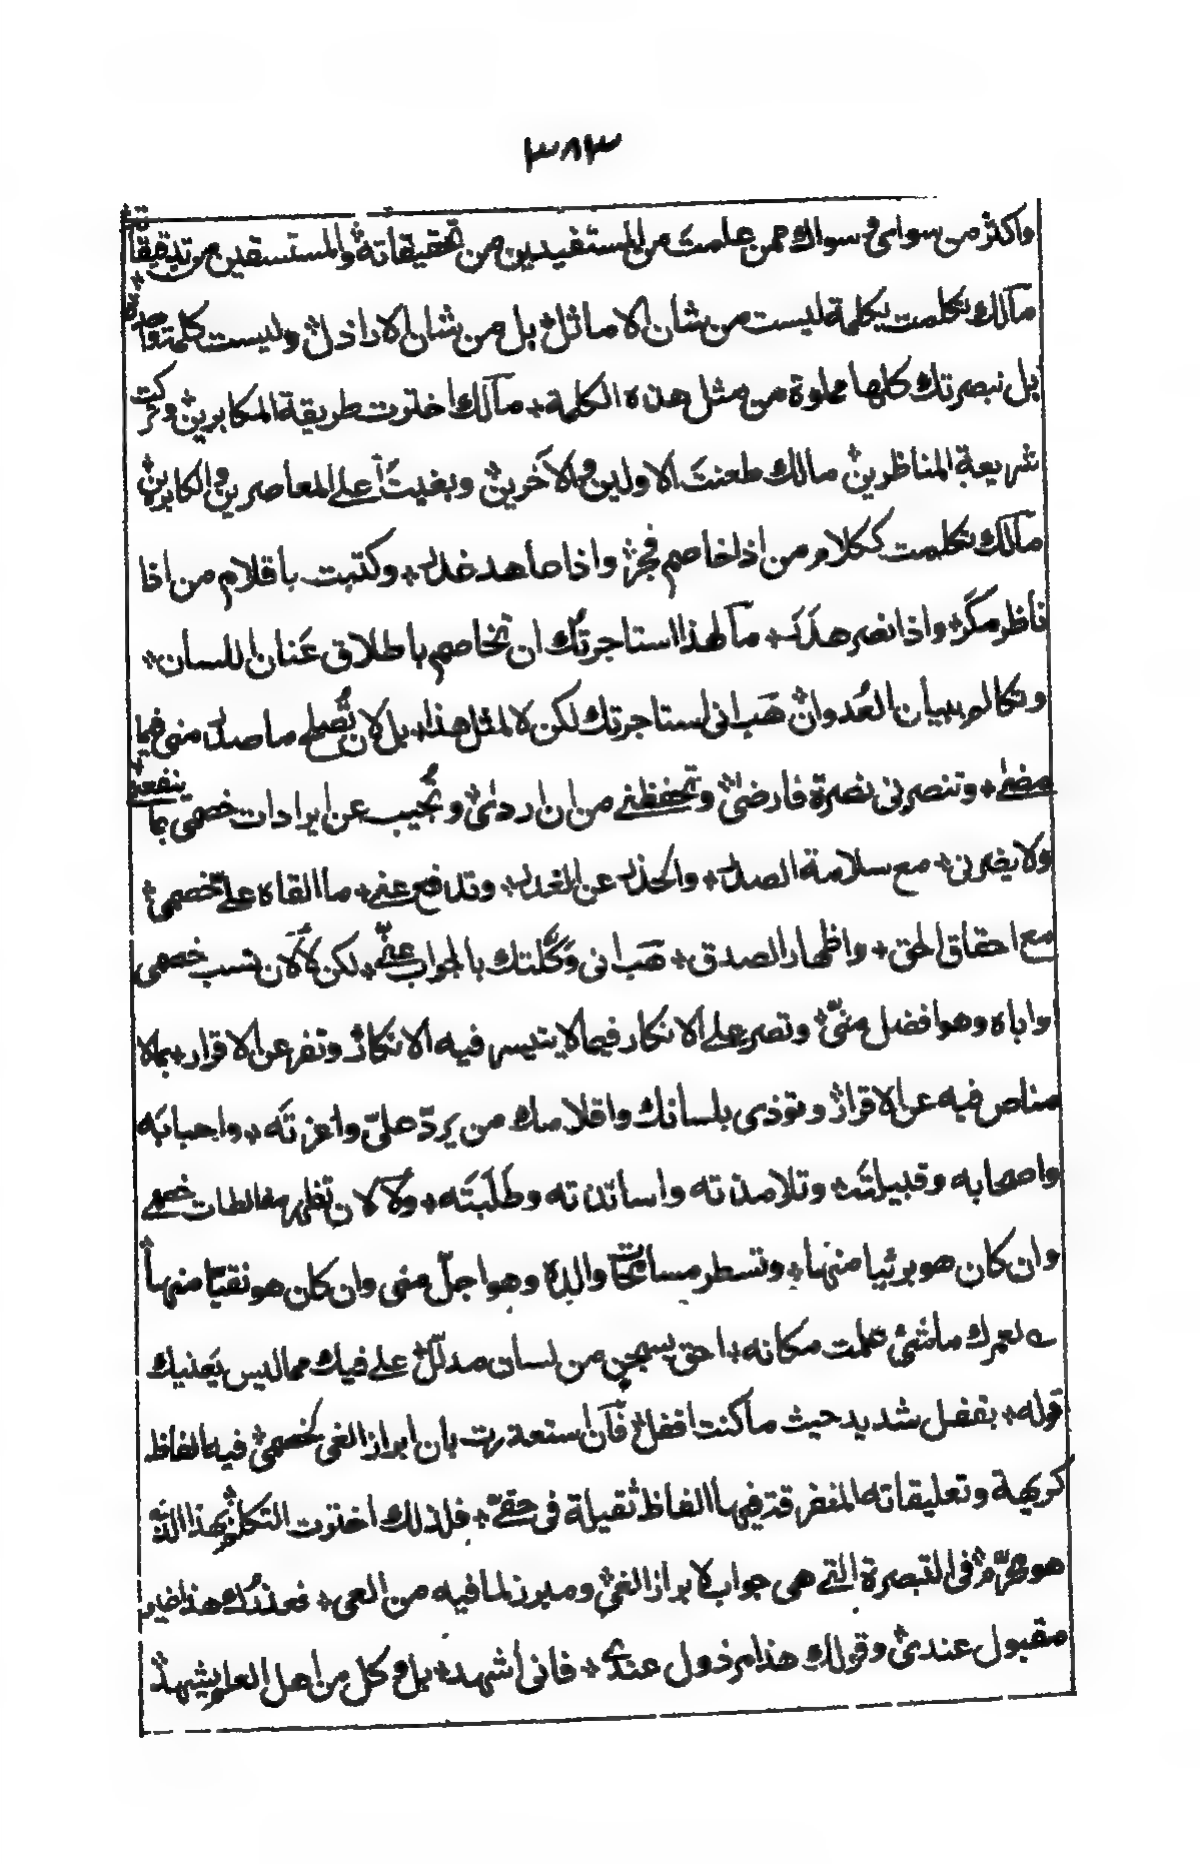 ٣٨٣
واكثر من سواى وسواك ممن علمت من المستفيدين من تحقيقاته والمستسقين من تدقيقاته
مآلك تكلمت بكلمة ليست من شان الاماثل بل من شان الاراذل وليست كلمتوا
بل نبصرتك كلها مملوة من مثل هذه الكلمة مآلك اخترت طريقة المكابرين وتركت
شريعة المناظرين مالك طعنت الاولين والآخرين وبغيت أعلى المعاصرين والكابرين
مآلك تكلمت ككلام من اذا خاصم فجر واذا عاهد غدر وكتبت بأقلام من اذا
ناظر مكر واذا نصر هذر مآ لهذا استاجرتك ان تخاصم باطلاق عنان اللسان
وتكالم ببيان العدوان هب انى استاجرتك لكن لا لمثل هذا بل لان تصلح ما صدر منى فيما
مضى وتنصرنى نصرة فارضى وتحفظنى من ان اردى وتجيب عن ايرادات خصمى بما ينفعنى
ولا يضرنى مع سلامة الصدر والحذر عن الغدر وتدفع عنى ما القاه على خصمى
مع احقاق الحق واظهار الصدق هب انى وكلتك بالجواب عنى لكن لا لان تسب خصمى
واباه وهو افضل منى وتصر على الانكار فيما لا يتيسر فيه الانكار وتفر عن الاقرار بما لا
مناص فيه عن الاقرار وتوذى بلسانك واقلامك من يرد على واعزته واحبابه
واصحابه وقبيلته وتلامذته واساتذته وطلبته ولا لان تظهر مغالطات خصمى
وان كان هو بريا منها وتسطر مسامحات والده وهو اجل منى وان كان هو نقيا منها
لعمرك ماشئ علمت مكانه احق بسجن من لسان مدلل على فيك مما ليس يعنيك
قوله بفضل شديد حيث ما كنت اقفل فآن استعذرت بان ابراز الغى لخصمى فيه الفاظ
كريهة وتعليقاته المتفرقة فيها الفاظ ثقيلة فى حقى فلذلك اخترت التكلم بهذا الذى
هو محرم فى التبصرة التى هى جواب لابراز الغى ومبرز لما فيه من العى فعذرك هذا غير
مقبول عندى وقولك هذا مرذول عندى فانى اشهد بل وكل من اهل العلم يشهد